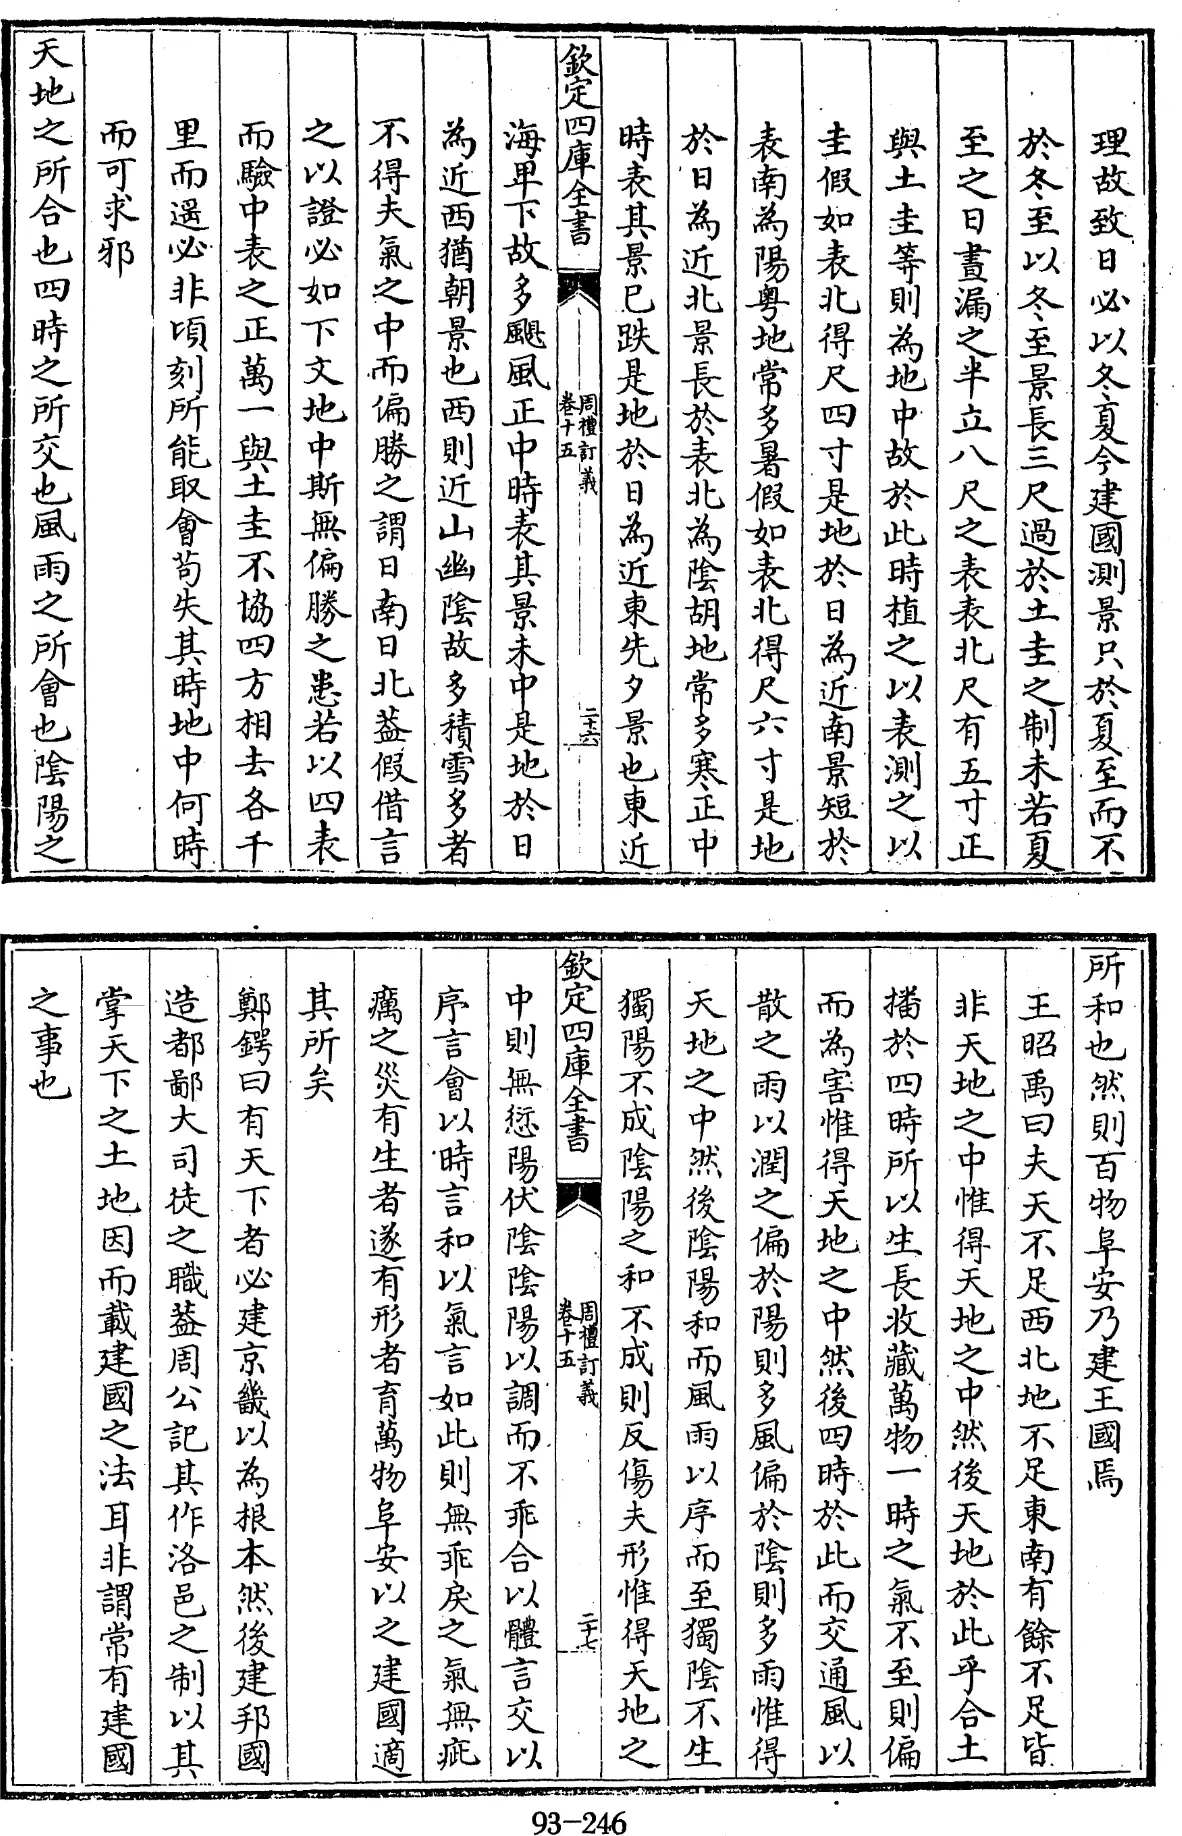 理故致日必以冬夏今建國測景只於夏至而不
於冬至以冬至景長三尺過於土圭之制未若夏
至之日晝漏之半立八尺之表表北尺有五寸正
與土圭等則為地中故於此時植之以表測之以
圭假如表北得尺四寸是地於日為近南景短於
表南為陽粤地常多暑假如表北得尺六寸是地
於日為近北景長於表北為陰胡地常多寒正中
時表其景已跌是地於日為近東先夕景也東近
欽定四庫全書
周禮訂義
卷十五
二十六
海卑下故多颶風正中時表其景未中是地於日
為近西猶朝景也西則近山幽陰故多積雪多者
不得夫氣之中而偏勝之謂日南日北葢假借言
之以證必如下文地中斯無偏勝之患若以四表
而驗中表之正萬一與土圭不協四方相去各千
里而遥必非頃刻所能取會茍失其時地中何時
而可求邪
天地之所合也四時之所交也風雨之所會也陰陽之
所和也然則百物阜安乃建王國焉
王昭禹曰夫天不足西北地不足東南有餘不足皆
非天地之中惟得天地之中然後天地於此乎合土
播於四時所以生長收藏萬物一時之氣不至則偏
而為害惟得天地之中然後四時於此而交通風以
散之雨以潤之偏於陽則多風偏於陰則多雨惟得
天地之中然後陰陽和而風雨以序而至獨陰不生
獨陽不成陰陽之和不成則反傷夫形惟得天地之
欽定四庫全書
周禮訂義
卷十五
二十七
中則無愆陽伏陰陰陽以調而不乖合以體言交以
序言會以時言和以氣言如此則無乖戾之氣無疵
癘之災有生者遂有形者育萬物阜安以之建國適
其所矣
鄭鍔曰有天下者必建京畿以為根本然後建邦國
造都鄙大司徒之職葢周公記其作洛邑之制以其
掌天下之土地因而載建國之法耳非謂常有建國
之事也
93-246